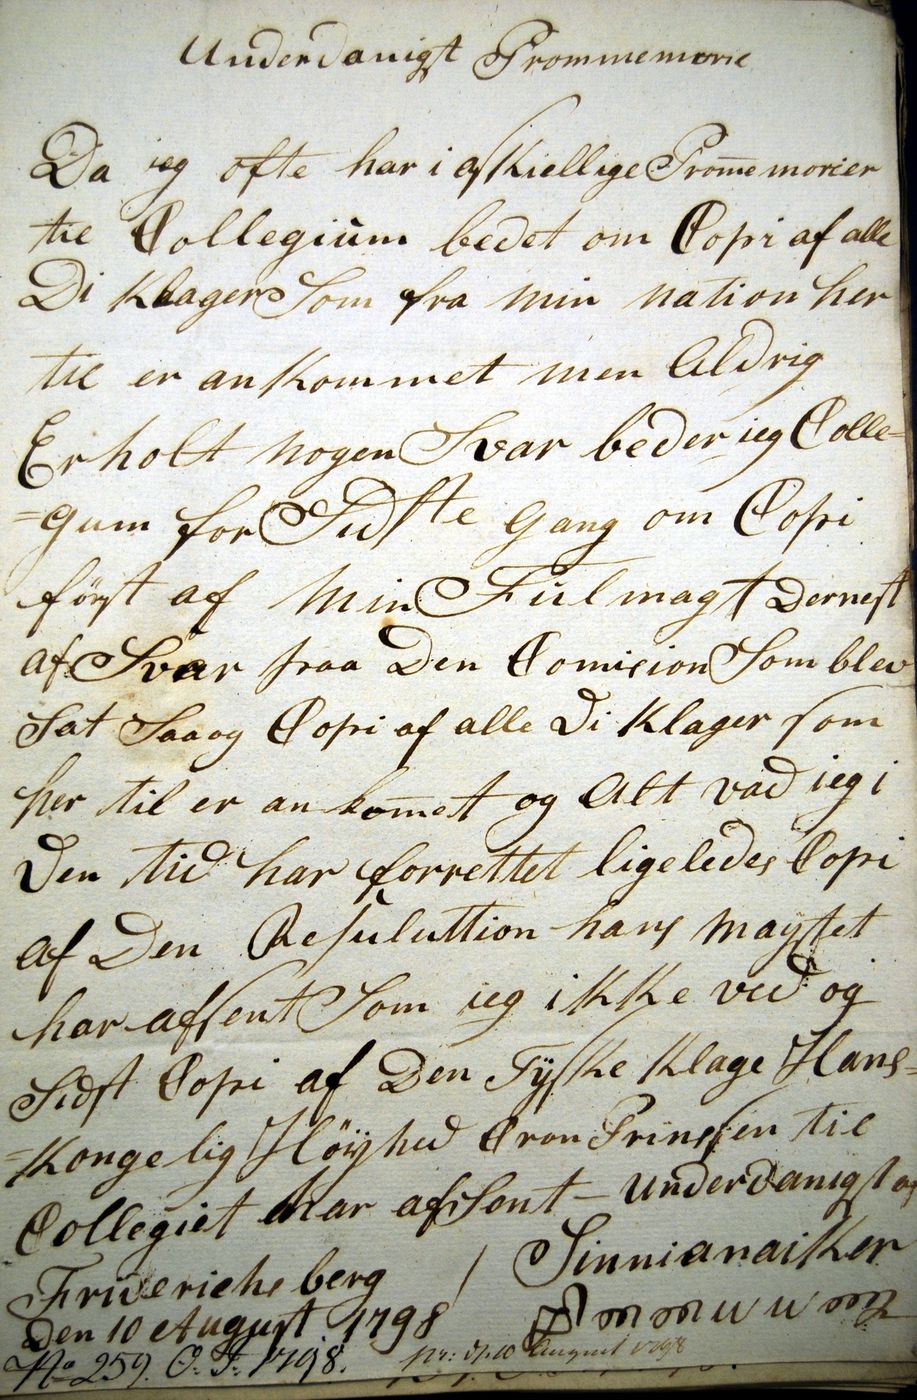 Underdanigt Prommemorie
Da jeg ofte har i adskiellige Prom̄emorier
til Collegium bedet om Copi af alle
Di Klager Som fra min nation her
til er an Kommet men Aldrig
Erholt nogen Svar beder jeg Colle=
=gium for Sidste Gang om Copi
först af Min Fulmagt Dernest
af Svar fraa Den Comision Som blev
Sat Saa og Copi af alle Di Klager som
her til er an kom̄et og Alt vad jeg i
Den tid har forrettet ligeledes Copi
af Den Resuluttion hans maystet
har afsent Som jeg ikke ved og
Sidst Copi af Den Tyske Klage Hans=
=Kongelig Höyhed Cron Prinsen til
Collegiet har afSent – Underdanigst af
Friderichsberg / Sinnianaiker
Den 10 August 1798
No 259. O. J. 1798. pr: d. 10 August 1798